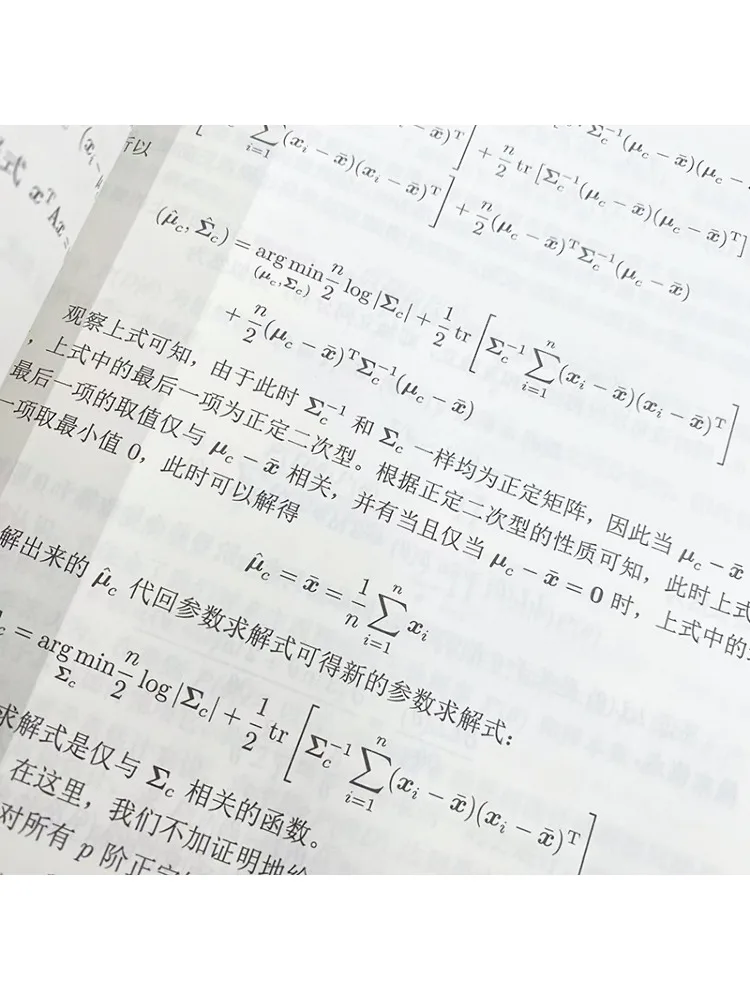 (x_i −
式 x^T Ax =
\sum_{i=1}^{n}(x_i − \bar{x})(x_i − \bar{x})^T ] + \frac{n}{2} tr[Σ_c^{-1}(μ_c − \bar{x})(μ_c − \bar{x})^T]
(x_i − \bar{x})^T ] + \frac{n}{2}(μ_c − \bar{x})^T Σ_c^{-1}(μ_c − \bar{x})
所以
(\hat{μ}_c, \hat{Σ}_c) = \arg\min_{(μ_c, Σ_c)} \frac{n}{2} log|Σ_c| + \frac{1}{2} tr[ Σ_c^{-1} \sum_{i=1}^{n}(x_i − \bar{x})(x_i − \bar{x})^T ]
+ \frac{n}{2}(μ_c − \bar{x})^T Σ_c^{-1}(μ_c − \bar{x})
观察上式可知,由于此时 Σ_c^{-1} 和 Σ_c 一样均为正定矩阵,因此当 μ_c − \bar{x}
,上式中的最后一项为正定二次型。根据正定二次型的性质可知,此时上式
最后一项的取值仅与 μ_c − \bar{x} 相关,并有当且仅当 μ_c − \bar{x} = 0 时,上式中的
一项取最小值 0,此时可以解得
\hat{μ}_c = \bar{x} = \frac{1}{n} \sum_{i=1}^{n} x_i
解出来的 \hat{μ}_c 代回参数求解式可得新的参数求解式:
= \arg\min_{Σ_c} \frac{n}{2} log|Σ_c| + \frac{1}{2} tr[ Σ_c^{-1} \sum_{i=1}^{n}(x_i − \bar{x})(x_i − \bar{x})^T ]
求解式是仅与 Σ_c 相关的函数。
在这里,我们不加证明地给
对所有 p 阶正定